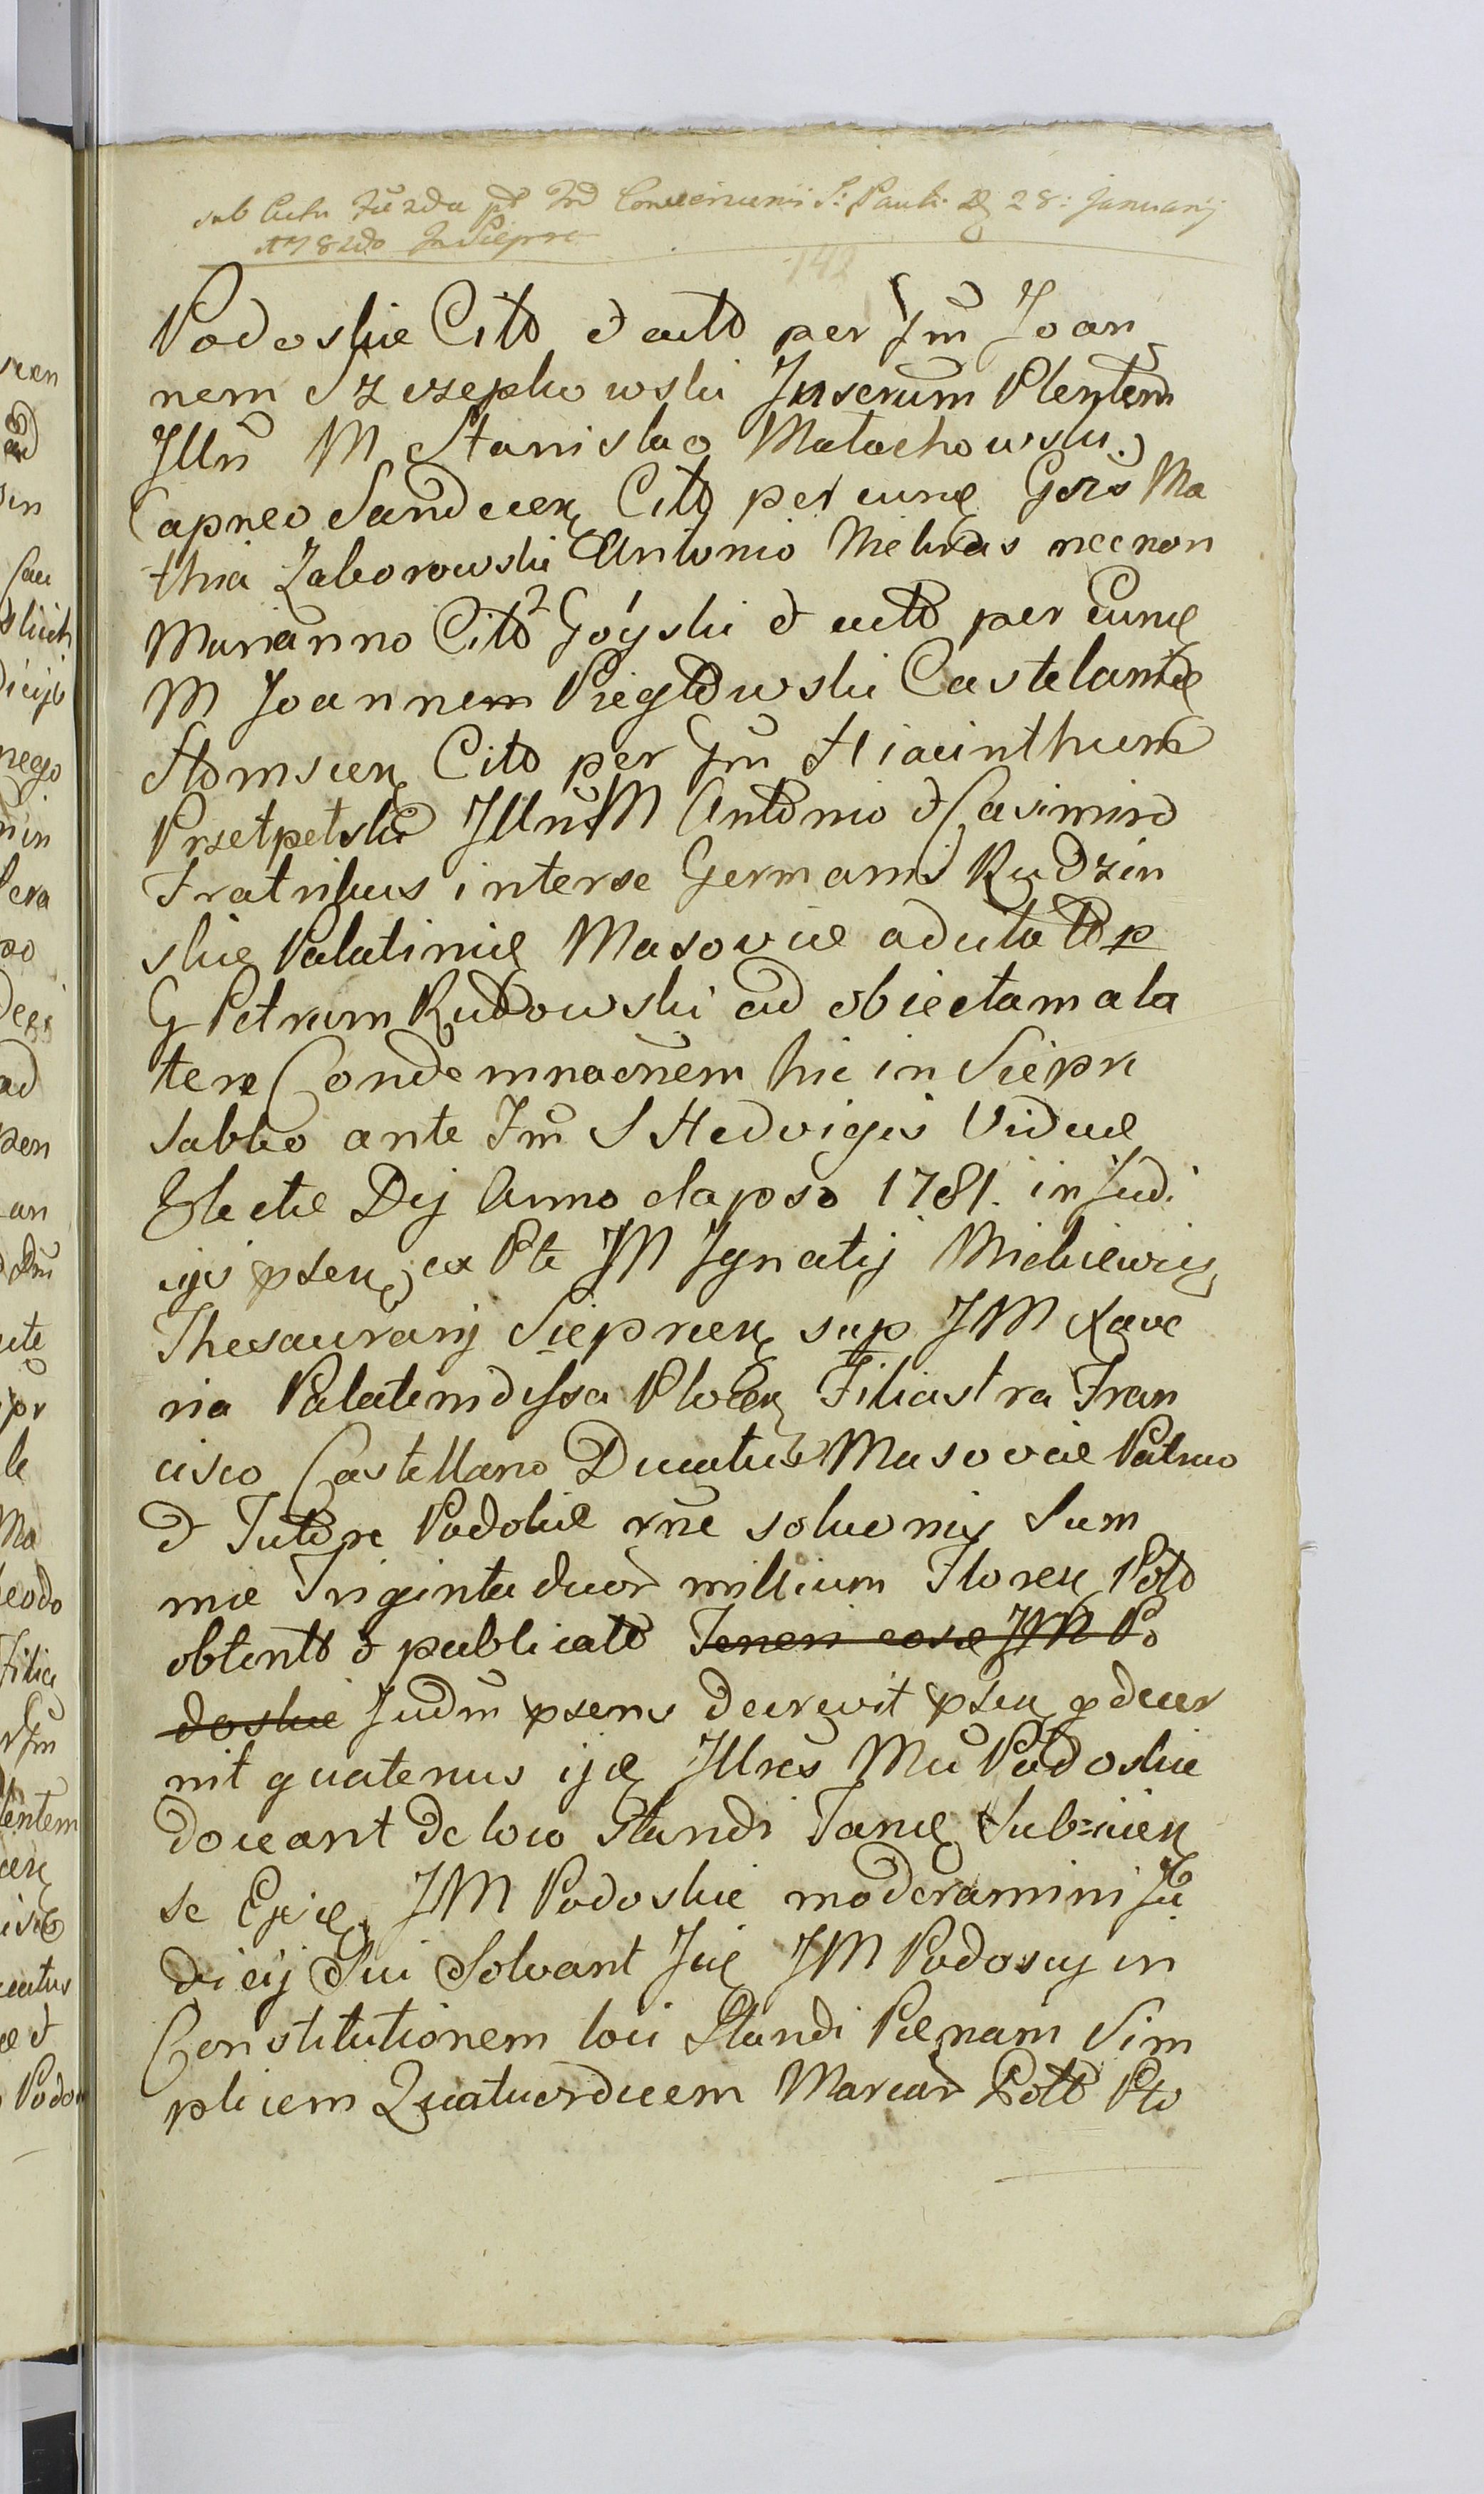 sub Actu Fu 2da pt Conversionis S: Pauli D 28: Januarij
A 782do In Sieprc
142
Podoskie Citt et actt per Gm Joan
nem Szczepkowski Inserum Plentem
Illri M Stanislao Małachowski
Capneo Sandecen Citt per eund Gosis Ma
thia Zaborowski Antonio Mekras necnon
Marianno Citt Góyski et actt per eund
M Joannem Piegłowski Castelanide
Słonscen Citt per Gm Hiacinthum
Przetpetski Illris M Antonio et Casimiro
Fratribus interse Germanis Rudzin
skie Palatinid Masoviæ adcitatt p
G Petrum Rudowski ad obiectam a la
tere Condemnaonem hic in Siepri
Sabbo ante Fm S Hedvigis Viduæ
Electæ Dij Anno elapso 1781. in Judi
cijs psen ex Pte JM Ignatij Mickiewicz
Thesaurarij Sieprcen sup JM Xave
ria Palatinidissa Plocen Filiastra Fran
cisco Castellano Ducatus Masoviæ Patruo
et Tutore Podoskie rne soluonis Sum
mæ Triginta duor millium Floren Poll
obtentt et publicatt Teneri eosd JM Po
doskie Judm psens decrevit psen decer
nit quatenus ijd Illres Mci Podoskie
doceant de loco Standi Tand Subijcien
se Ejusd JM Podoskie moderamini Ju
dicij Sui Solvant Jid JM Podoscy in
Constitutionem loci Standi Pænam Sim
plicem Quatuordecem Marcar Poll Pto